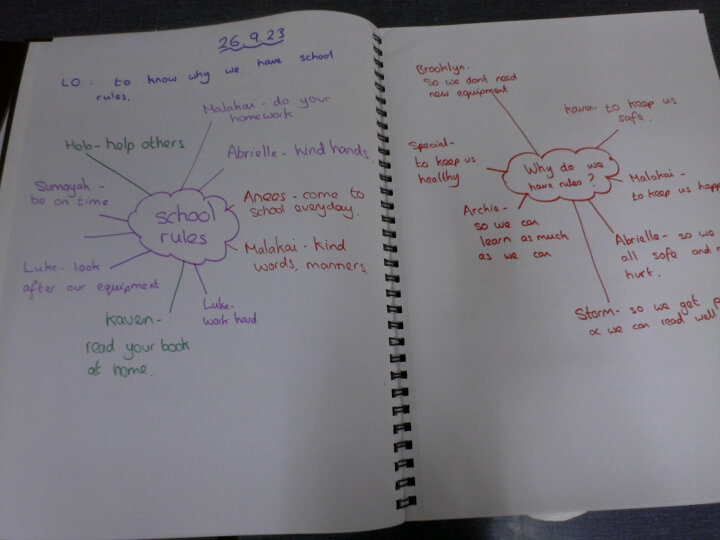 26.9.23
LO: to know why we have school
rules.
Malakai - do your
homework
Abrielle - kind hands
Anees - come to
school everyday.
Malakai - kind
words, manners
Luke -
work hard
Kaven -
read your book
at home.
Luke - look
after our equipment
Sumayah -
be on time
help others
school
rules
Brooklyn.
So we dont need
new equipment
Kaven - to keep us
safe.
Malakai -
to keep us
Abrielle - so we
all safe and
hurt.
Storm - so we get
& we can read well
Archie -
so we can
learn as much
as we can
Special -
to keep us
healthy
Why do we
have rules?